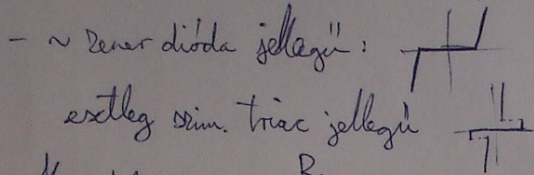 - ~ Zener dióda jellegű:
esetleg szim. triac jellegű